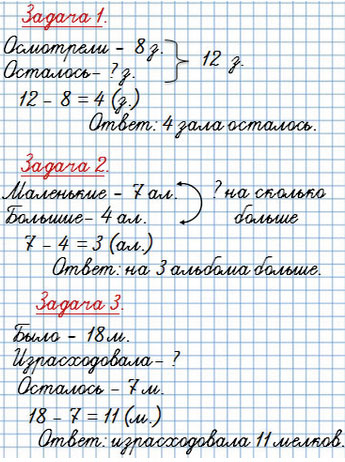 Задача 1.
Осмотрели – 8 з.
Осталось – ? з.
12 з.
12 – 8 = 4 (з.)
Ответ: 4 зала осталось.
Задача 2.
Маленькие – 7 ал. ? на сколько
Большие – 4 ал. больше
7 – 4 = 3 (ал.)
Ответ: на 3 альбома больше.
Задача 3.
Было – 18 м.
Израсходовала – ?
Осталось – 7 м.
18 – 7 = 11 (м.)
Ответ: израсходовала 11 мелков.